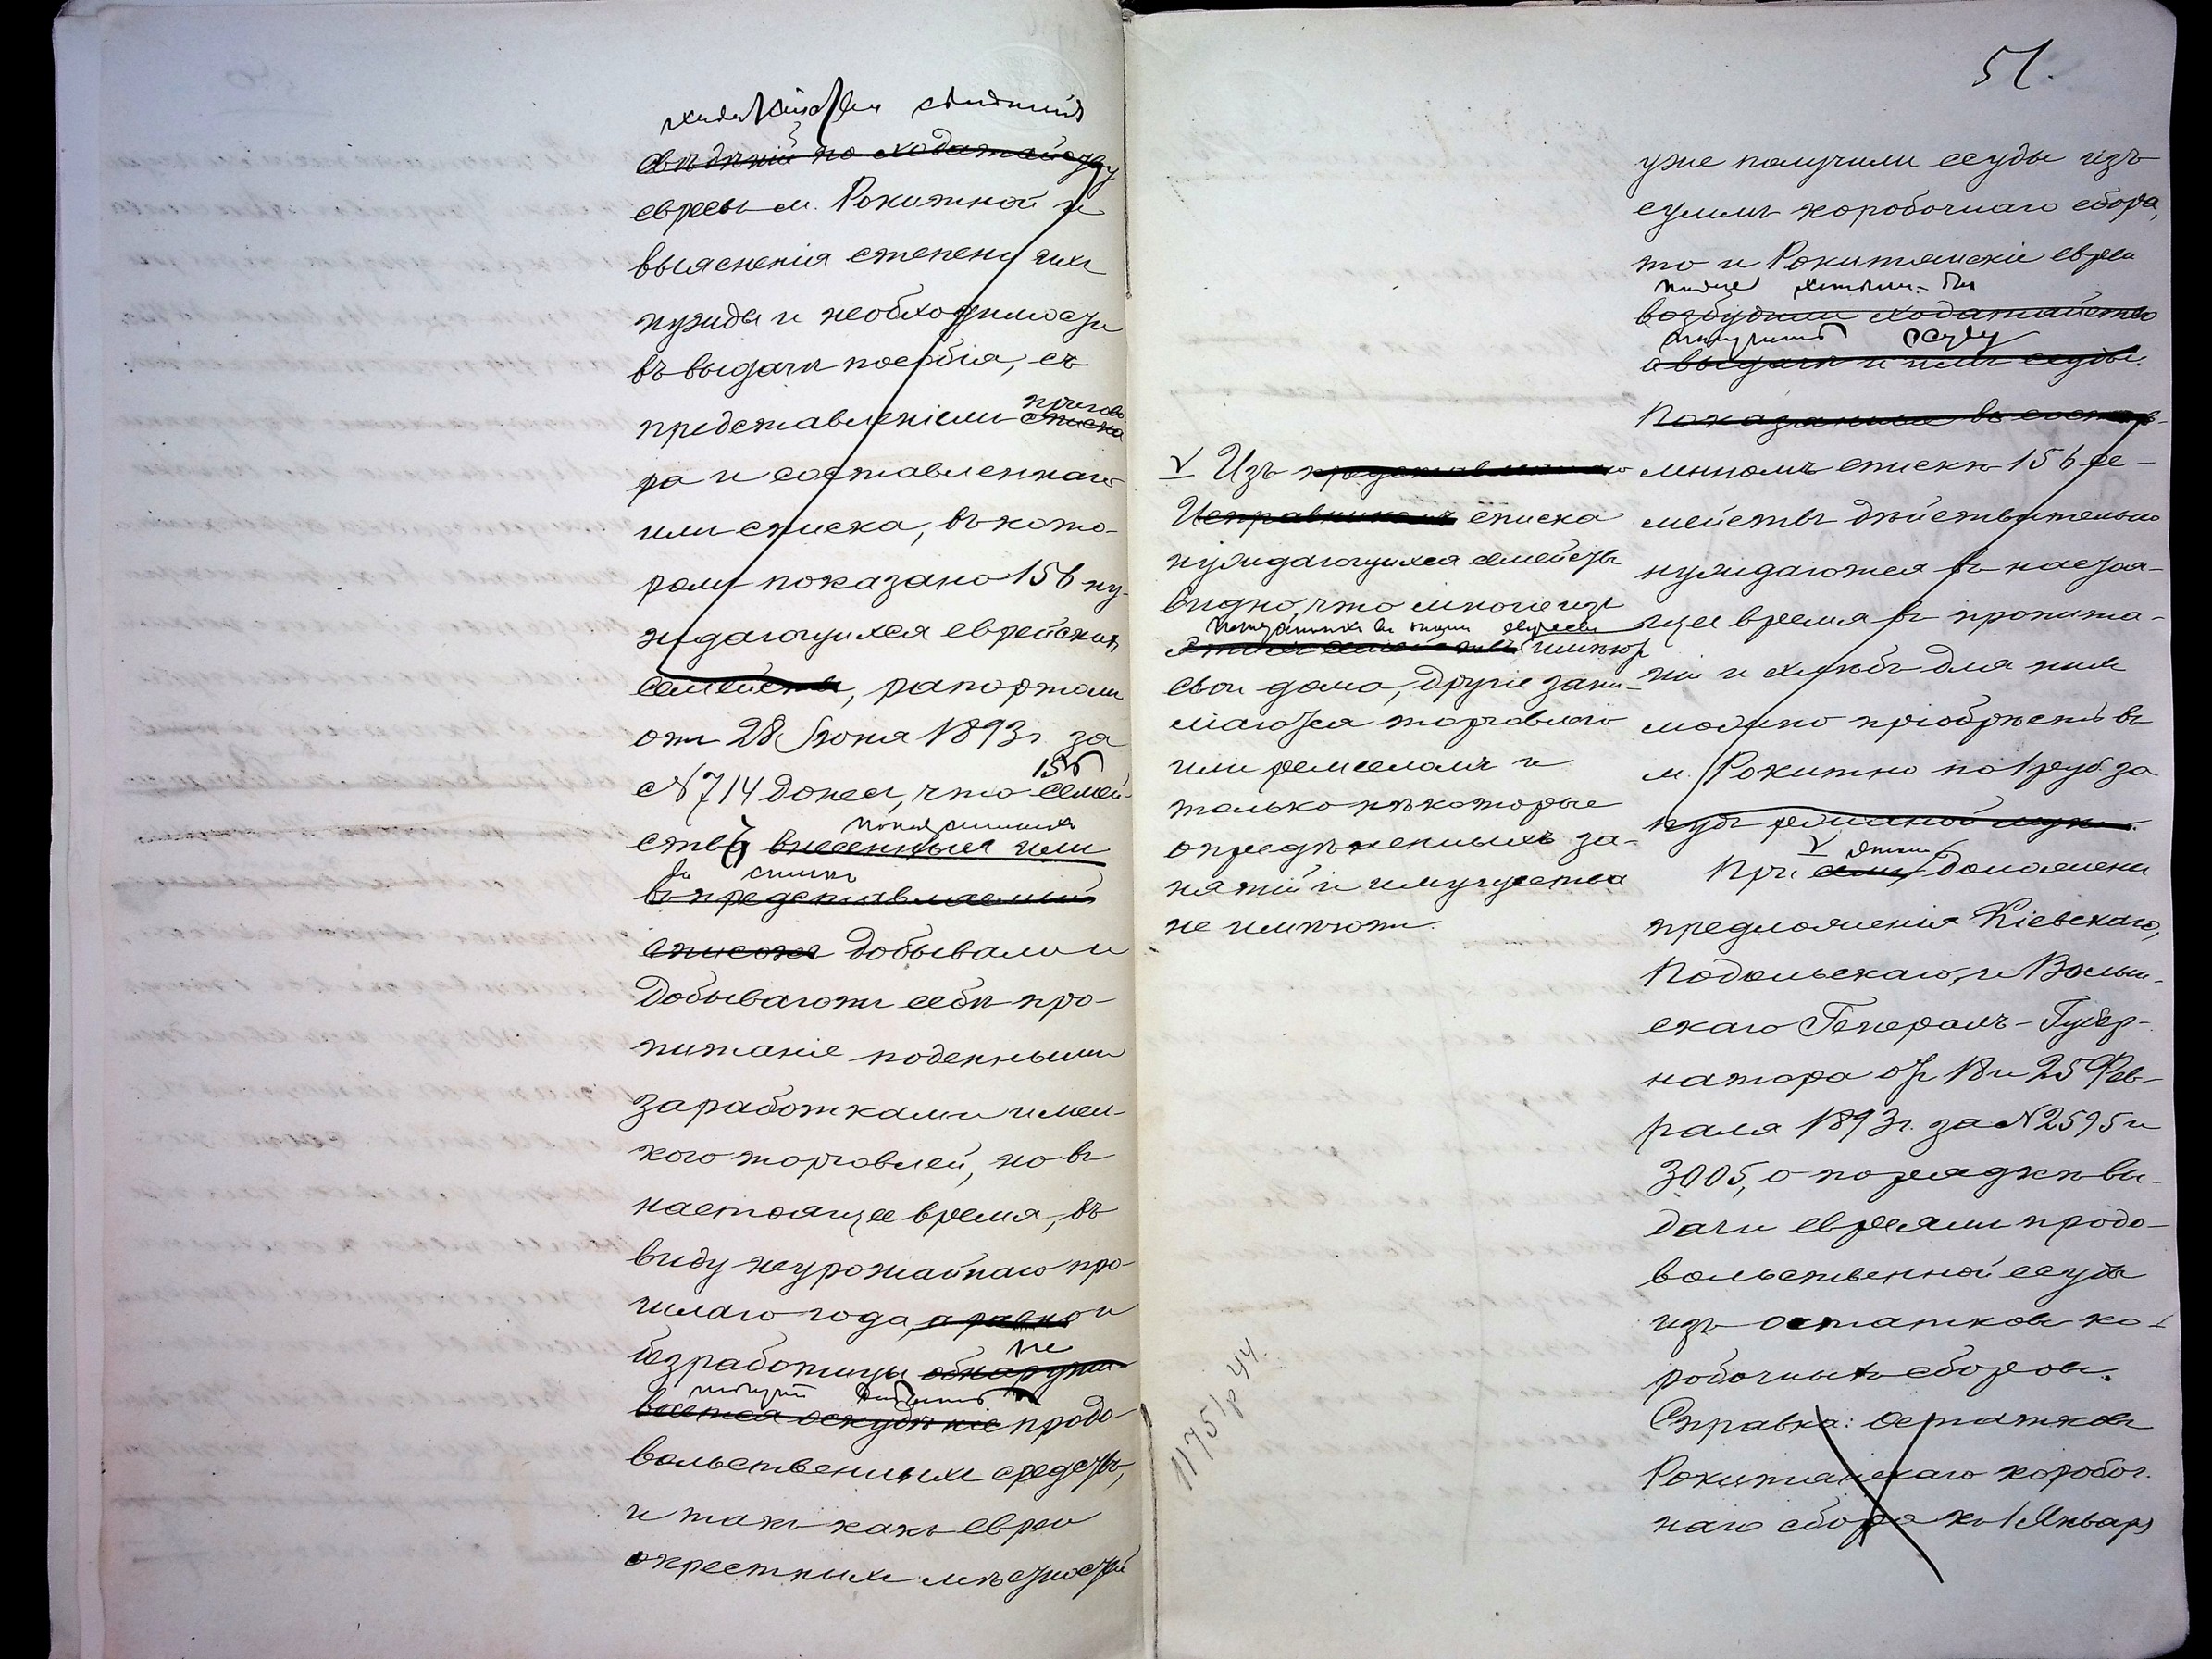 ходатайства сведений
свѣдѣній по ходатайству
евреевъ м. Рокитной и
выясненія степени ихъ
нужды и необходимости
въ выдачѣ пособія, съ
представленіемъ
пригово
списка
ра и составленнаго
ими списка, въ кото-
ромъ показано 156 ну-
ждающихся еврейскихъ
семействъ, рапортомъ
отъ 28 Іюня 1893 г. за
№ 714 донесъ, что семей-
156
ствъ внесенныя ими
показанныхъ
въ спискѣ
въ представляемый
списокъ добывали и
добываютъ себѣ про-
питаніе поденными
заработками и мел-
кою торговлей, но въ
настоящее время, въ
виду неурожайнаго про-
шлаго года, а равно и
безработицы обнаружи-
не
могутъ добыть
вается оскудѣніе продо-
вольственныхъ средствъ,
и такъ какъ евреи
окрестныхъ мѣстностей
51.
уже получили ссуды изъ
суммъ коробочнаго сбора,
то и Рокитянскіе евреи
также хотѣли-бы
возбудили ходатайство
получить ссуду
о выдачѣ и имъ ссуды.
Показанные въ состав-
ленномъ спискѣ 156 се-
мействъ дѣйствительно
нуждаются въ настоя-
щее время въ пропита-
ніи и хлѣбъ для нихъ
можно пріобрѣсть въ
м. Рокитно по 1 руб. за
пудъ ржаной муки.
V Изъ представленнаго
Исправникомъ списка
нуждающихся семействъ
видно, что многіе изъ
показанныхъ въ немъ евреевъ
этихъ семействъ имѣютъ
свои дома, другіе зани-
маются торговлею
или ремесломъ и
только нѣкоторые
опредѣленныхъ за-
нятій и имущества
не имѣютъ.
V
При семъ доложены
этомъ
предложенія Кіевскаго,
Подольскаго, и Волын-
скаго Генералъ-Губер-
натора отъ 18 и 25 Фев-
раля 1893 г. за № 2595 и
3005, о порядкѣ вы-
дачи евреямъ продо-
вольственной ссуды
изъ остатковъ ко-
робочныхъ сборовъ.
Справка: остатковъ
Рокитянскаго коробоч-
наго сбора къ 1 Январ
1175/р 44.